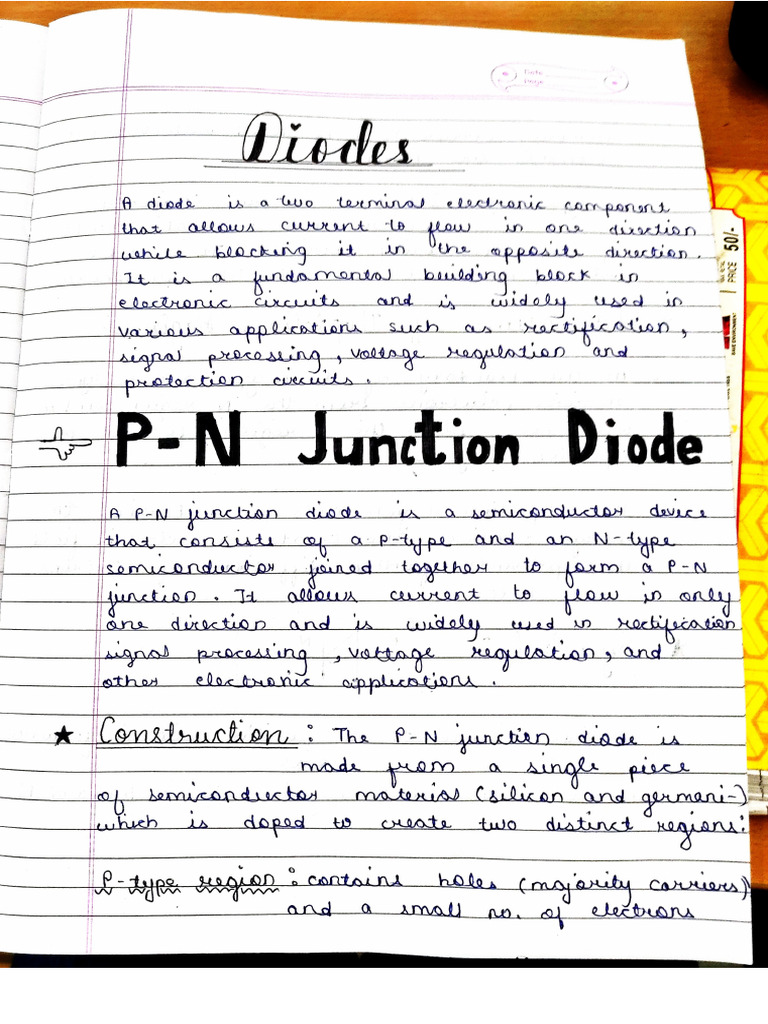 Date
Page
Diodes
A diode is a two terminal electronic component
that allows current to flow in one direction
while blocking it in the opposite direction.
It is a fundamental building block in
electronic circuits and is widely used in
various applications such as rectification,
signal processing, voltage regulation and
protection circuits.
P-N Junction Diode
A P-N junction diode is a semiconductor device
that consists of a P-type and an N-type
semiconductor joined together to form a P-N
junction. It allows current to flow in only
one direction and is widely used in rectification
signal processing, voltage regulation, and
other electronic applications.
★ Construction : The P-N junction diode is
made from a single piece
of semiconductor material (silicon and germani-)
which is doped to create two distinct regions:
P-type region : contains holes (majority carriers)
and a small no. of electrons
PRICE 50/-